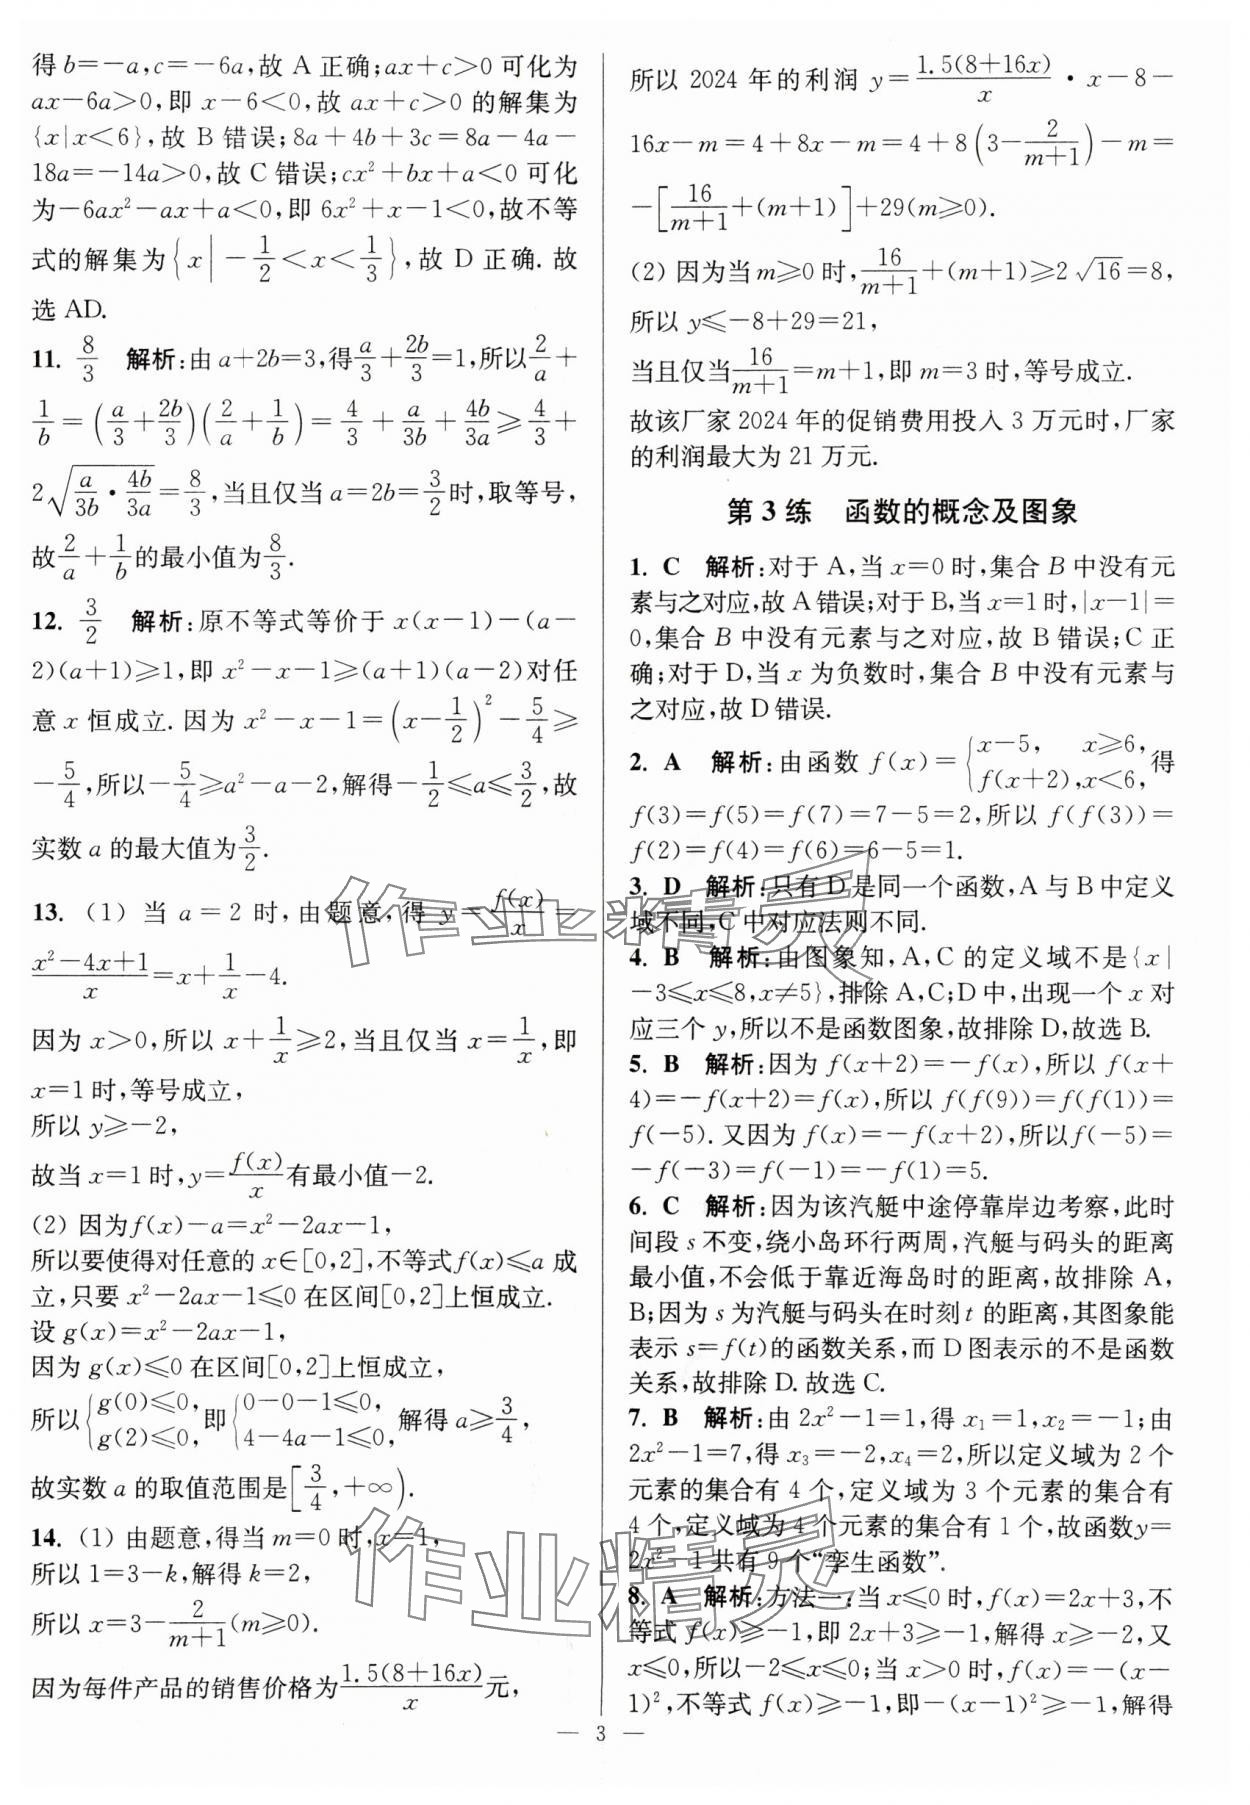 得b=-a,c=-6a,故 A 正确;ax+c>0 可化为
ax-6a>0,即 x-6<0,故 ax+c>0 的解集为
{x|x<6},故 B 错误;8a+4b+3c=8a-4a-
18a=-14a>0,故 C 错误;cx²+bx+a<0 可化
为-6ax²-ax+a<0,即 6x²+x-1<0,故不等
式的解集为{x|-1/2<x<1/3},故 D 正确. 故
选 AD.
11. 8/3 解析:由 a+2b=3,得a/3+2b/3=1,所以2/a+
1/b=(a/3+2b/3)(2/a+1/b)=4/3+a/3b+4b/3a≥4/3+
2√(a/3b·4b/3a)=8/3,当且仅当 a=2b=3/2时,取等号,
故2/a+1/b的最小值为8/3.
12. 3/2 解析:原不等式等价于 x(x-1)-(a-
2)(a+1)≥1,即 x²-x-1≥(a+1)(a-2)对任
意 x 恒成立. 因为 x²-x-1=(x-1/2)²-5/4≥
-5/4,所以-5/4≥a²-a-2,解得-1/2≤a≤3/2,故
实数 a 的最大值为3/2.
13. (1) 当 a=2 时,由题意,得 y=f(x)/x=
(x²-4x+1)/x=x+1/x-4.
因为 x>0,所以 x+1/x≥2,当且仅当 x=1/x,即
x=1 时,等号成立,
所以 y≥-2,
故当 x=1 时,y=f(x)/x有最小值-2.
(2) 因为f(x)-a=x²-2ax-1,
所以要使得对任意的 x∈[0,2],不等式f(x)≤a 成
立,只要 x²-2ax-1≤0 在区间[0,2]上恒成立.
设 g(x)=x²-2ax-1,
因为 g(x)≤0 在区间[0,2]上恒成立,
所以{g(0)≤0, g(2)≤0,即{0-0-1≤0, 4-4a-1≤0,解得 a≥3/4,
故实数 a 的取值范围是[3/4,+∞).
14. (1) 由题意,得当 m=0 时,x=1,
所以 1=3-k,解得 k=2,
所以 x=3-2/(m+1)(m≥0).
因为每件产品的销售价格为1.5(8+16x)/x元,
所以 2024 年的利润 y=1.5(8+16x)/x·x-8-
16x-m=4+8x-m=4+8(3-2/(m+1))-m=
-[16/(m+1)+(m+1)]+29(m≥0).
(2) 因为当 m≥0 时,16/(m+1)+(m+1)≥2√16=8,
所以 y≤-8+29=21,
当且仅当16/(m+1)=m+1,即 m=3 时,等号成立.
故该厂家 2024 年的促销费用投入 3 万元时,厂家
的利润最大为 21 万元.
第 3 练 函数的概念及图象
1. C 解析:对于 A,当 x=0 时,集合 B 中没有元
素与之对应,故 A 错误;对于 B,当 x=1 时,|x-1|=
0,集合 B 中没有元素与之对应,故 B 错误;C 正
确;对于 D,当 x 为负数时,集合 B 中没有元素与
之对应,故 D 错误.
2. A 解析:由函数 f(x)={x-5, x≥6, f(x+2),x<6,得
f(3)=f(5)=f(7)=7-5=2,所以 f(f(3))=
f(2)=f(4)=f(6)=6-5=1.
3. D 解析:只有 D 是同一个函数,A 与 B 中定义
域不同,C 中对应法则不同.
4. B 解析:由图象知,A,C 的定义域不是{x|
-3≤x≤8,x≠5},排除 A,C;D 中,出现一个 x 对
应三个 y,所以不是函数图象,故排除 D,故选 B.
5. B 解析:因为 f(x+2)=-f(x),所以 f(x+
4)=-f(x+2)=f(x),所以 f(f(9))=f(f(1))=
f(-5). 又因为 f(x)=-f(x+2),所以f(-5)=
-f(-3)=f(-1)=-f(1)=5.
6. C 解析:因为该汽艇中途停靠岸边考察,此时
间段 s 不变,绕小岛环行两周,汽艇与码头的距离
最小值,不会低于靠近海岛时的距离,故排除 A,
B;因为 s 为汽艇与码头在时刻 t 的距离,其图象能
表示 s=f(t)的函数关系,而 D 图表示的不是函数
关系,故排除 D. 故选 C.
7. B 解析:由 2x²-1=1,得 x₁=1,x₂=-1;由
2x²-1=7,得 x₃=-2,x₄=2,所以定义域为 2 个
元素的集合有 4 个,定义域为 3 个元素的集合有
4 个,定义域为 4 个元素的集合有 1 个,故函数y=
2x²-1 共有 9 个“孪生函数”.
8. A 解析:方法一:当 x≤0 时,f(x)=2x+3,不
等式 f(x)≥-1,即 2x+3≥-1,解得 x≥-2,又
x≤0,所以-2≤x≤0;当 x>0 时,f(x)=-(x-
1)²,不等式 f(x)≥-1,即-(x-1)²≥-1,解得
— 3 —
作业精灵
作业精灵